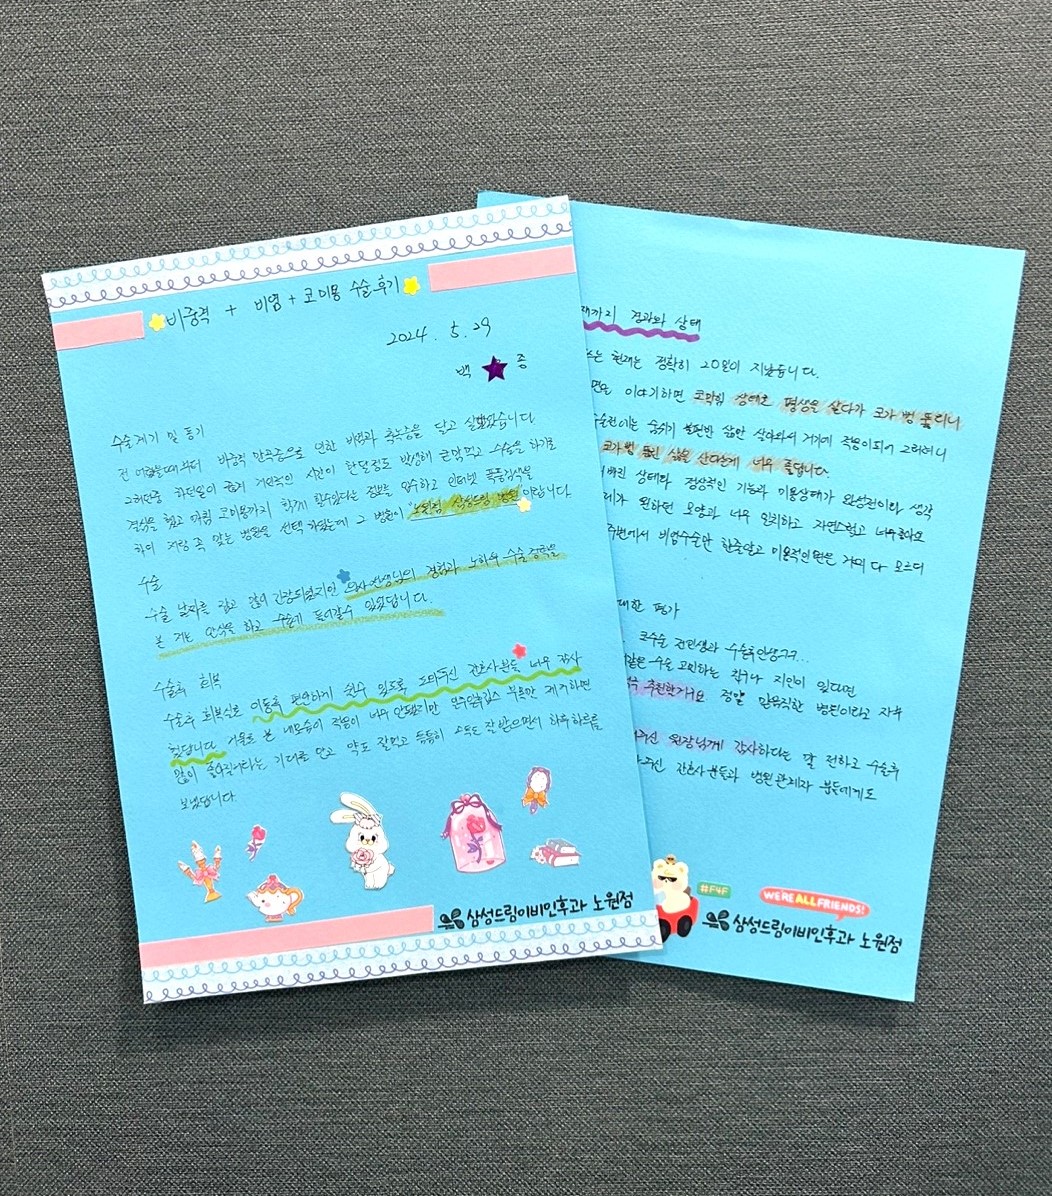 비중격 + 비염 + 코미용 수술후기
2024. 5. 29
백 증
수술계기 및 동기
전 어렸을때부터 비중격 만곡증으로 인한 비염과 축농증을 달고 살았었습니다
그러던중 하던일이 쉽게 개인적인 시간이 한달정도 발생해 큰맘먹고 수술을 하기로
결심을 했고 마침 코미용까지 함께 할수있다는 정보를 입수하고 인터넷 폭풍검색을
하여 저랑 꼭 맞는 병원을 선택 하였는데 그 병원이 "노원점 삼성드림 병원"이랍니다.
수술
수술 날짜를 잡고 많이 긴장되었지만 의사선생님의 경험과 노하우 수술 경력을
본 저는 안심을 하고 수술에 들어갈수 있었답니다.
수술후 회복
수술후 회복실로 이동후 편안하게 쉴수 있도록 도와주신 간호사분들 너무 감사
했답니다. 거울로 본 내모습이 적응이 너무 안됐지만 부목만 제거하면
많이 좋아질거라는 기대를 안고 약도 잘먹고 틈틈히 소독도 잘 받으면서 하루하루를
보냈답니다.
삼성드림이비인후과 노원점
재까지 경과와 상태
쓰는 현재는 정확히 20일이 지났습니다.
면을 이야기하면 코막힘 상태로 평생을 살다가 코가 뻥 뚫리니
수술전에는 숨쉬기 불편한 삶만 살아와서 거기에 적응이되어 그러려니
코가 뻥 뚫린 삶을 산다는게 너무 좋답니다.
빠진 상태라 정상적인 기능과 미용상태가 완성전이라 생각
제가 원하던 모양과 너무 일치하고 자연스럽고 너무좋아요
주변에서 비염수술만 한줄알고 미용적인면은 거의 다 모르더
대한 평가
코수술 전인생과 수술후인생ㅋㅋ...
같은 수술 고민하는 친구나 지인이 있다면
추천할거고요 정말 믿음직한 병원이라고 자부
주신 원장님께 감사하다는 말 전하고 수술후
주신 간호사분들과 병원관계자 분들에게도
#F4F
WE'RE ALL FRIENDS!
삼성드림이비인후과 노원점